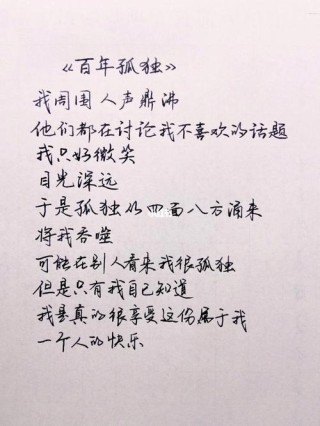 《百年孤独》
我周围人声鼎沸
他们都在讨论我不喜欢的话题
我只好微笑
目光深远
于是孤独从四面八方涌来
将我吞噬
可能在别人看来我很孤独
但是只有我自己知道
我是真的很享受这份属于我
一个人的快乐